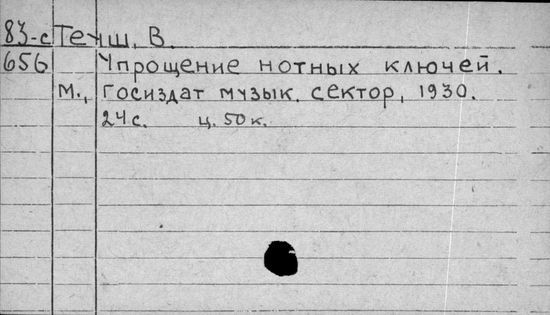 83-с Течш, В.
656 Упрощение нотных ключей.
М., Госиздат музык. сектор, 1930.
24 с. ц. 50 к.